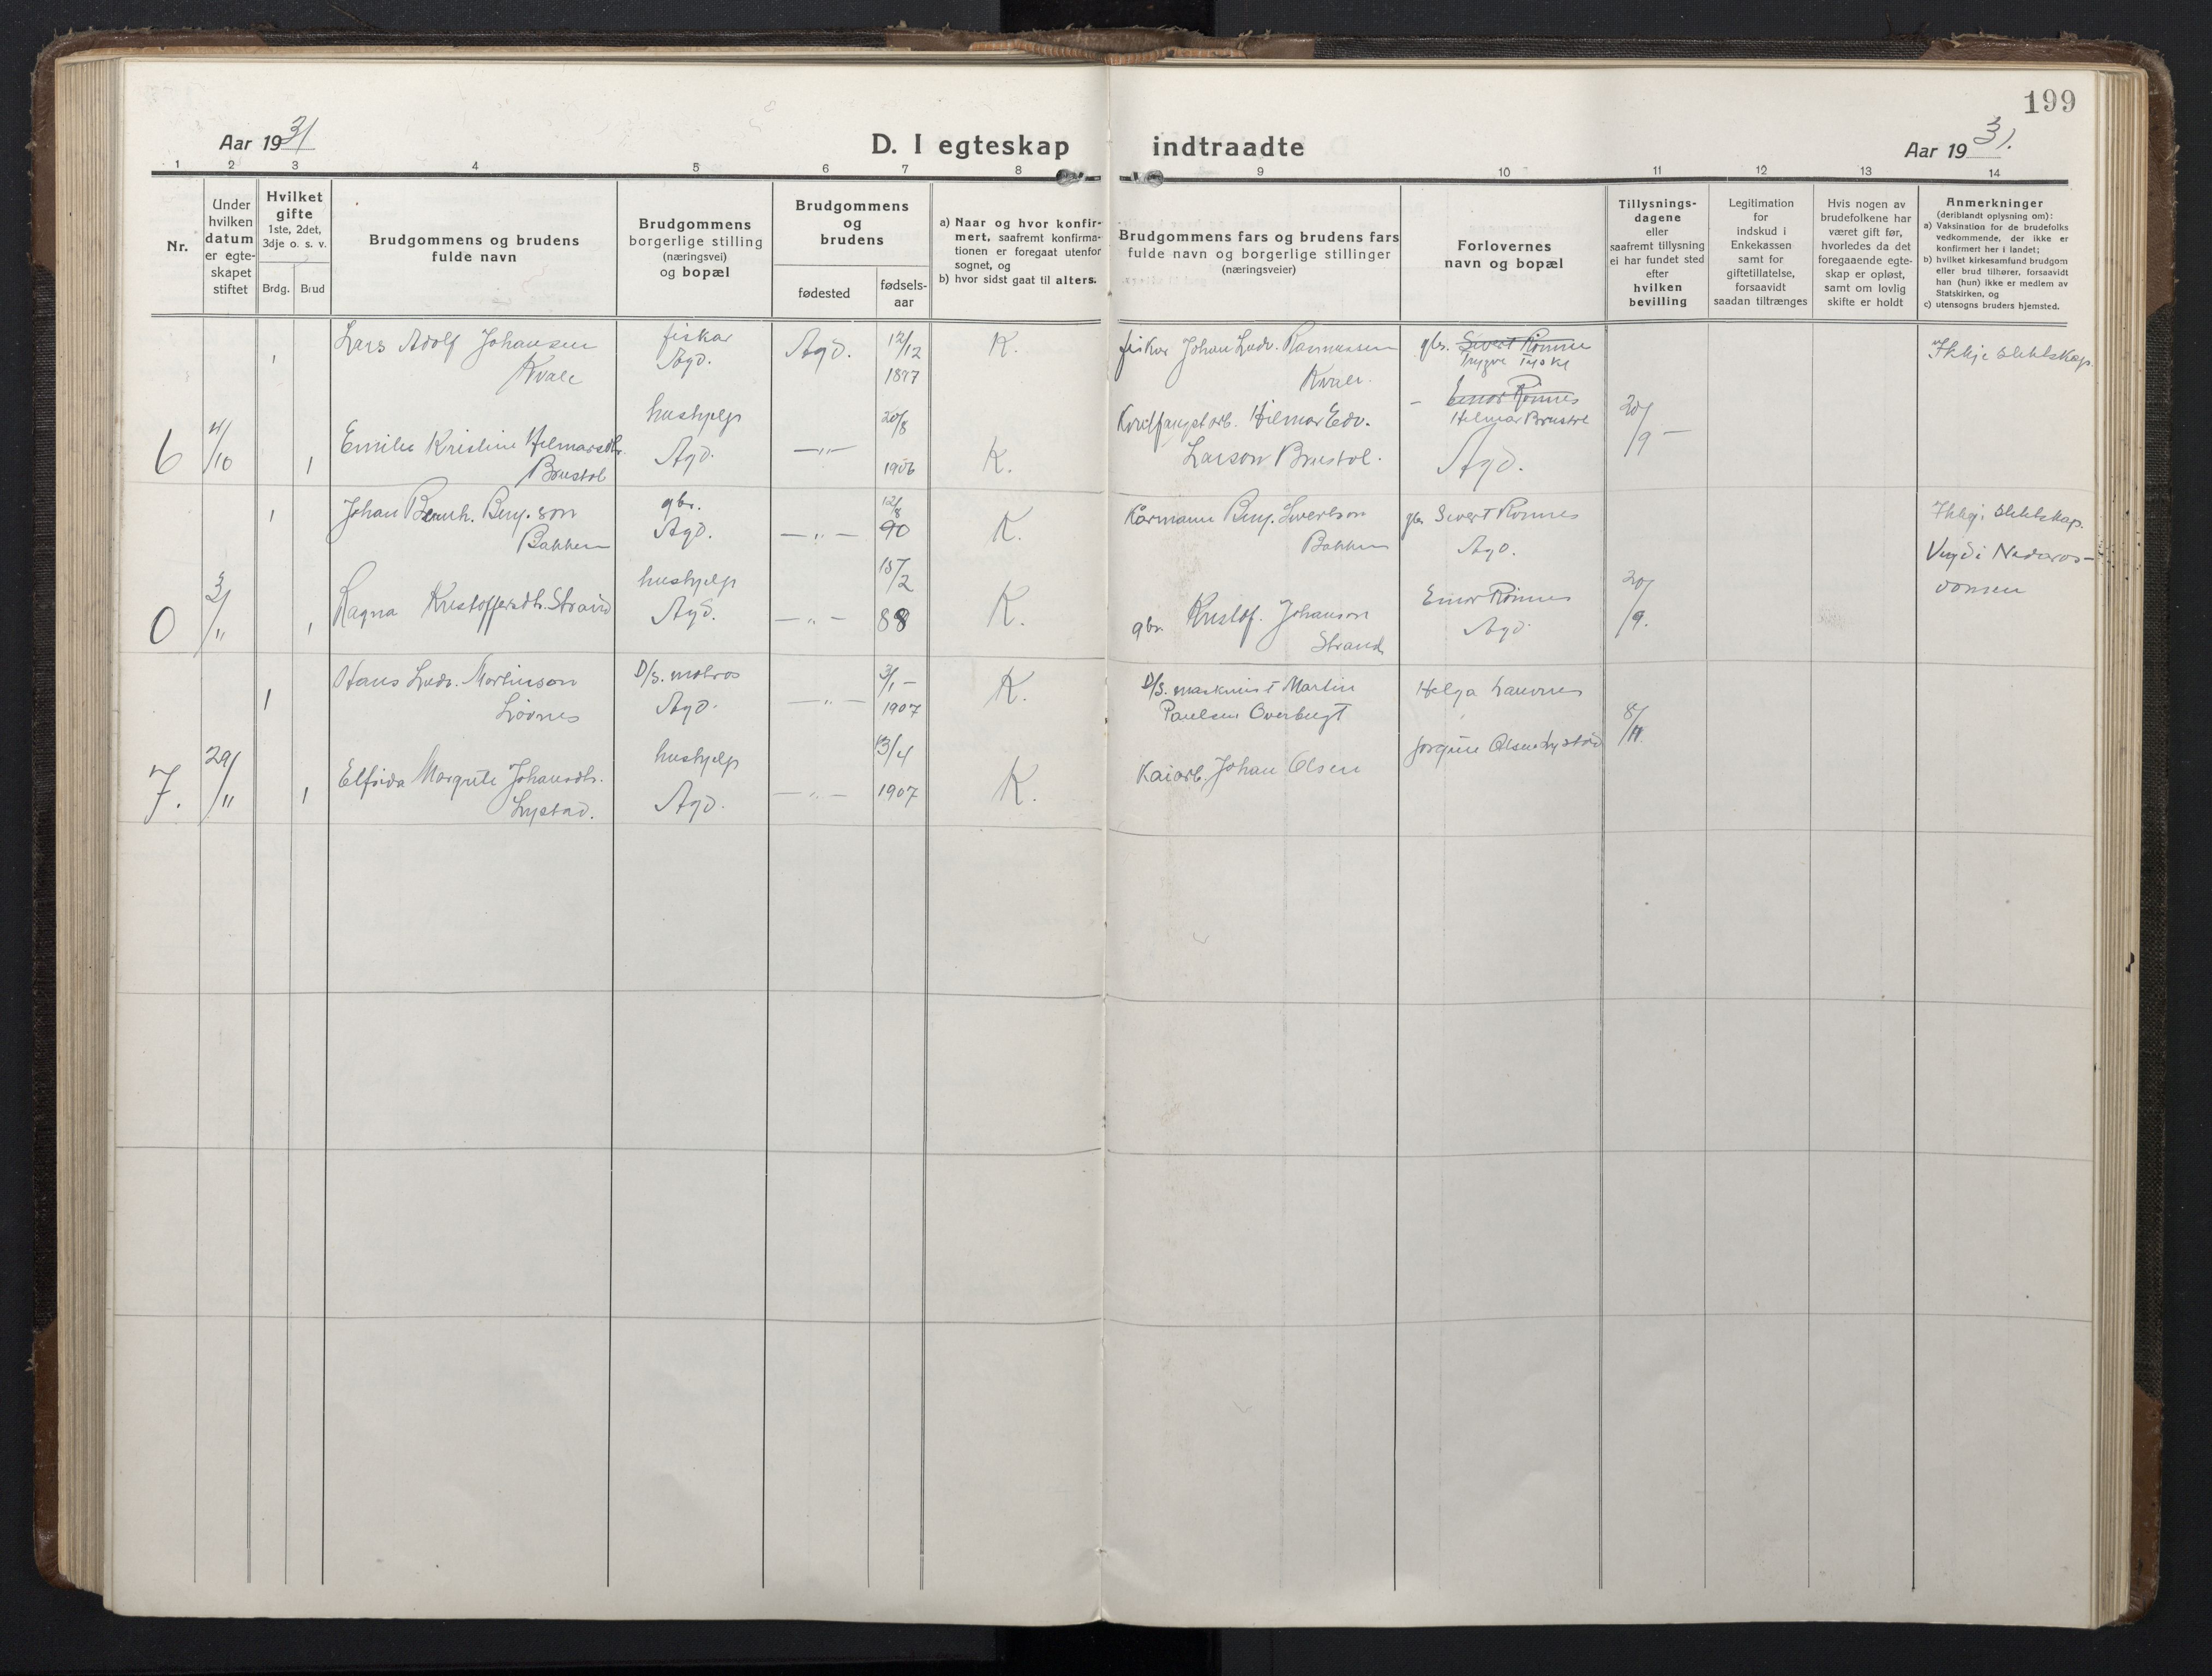 199
Aar 1931
D. I egteskap indtraadte
Aar 1931.
1 2 3 4 5 6 7 8 9 10 11 12 13 14
Nr.
Under
hvilken
datum
er egte-
skapet
stiftet
Hvilket
gifte
1ste, 2det,
3dje o. s. v.
Brdg. Brud
Brudgommens og brudens
fulde navn
Brudgommens
borgerlige stilling
(næringsvei)
og bopæl
Brudgommens
og
brudens
fødested
fødsels-
aar
a) Naar og hvor konfir-
mert, saafremt konfirma-
tionen er foregaat utenfor
sognet, og
b) hvor sidst gaat til alters.
Brudgommens fars og brudens fars
fulde navn og borgerlige stillinger
(næringsveier)
Forlovernes
navn og bopæl
Tillysnings-
dagene
eller
saafremt tillysning
ei har fundet sted
efter
hvilken
bevilling
Legitimation
for
indskud i
Enkekassen
samt for
giftetillatelse,
forsaavidt
saadan tiltrænges
Hvis nogen av
brudefolkene har
været gift før,
hvorledes da det
foregaaende egte-
skap er opløst,
samt om lovlig
skifte er holdt
Anmerkninger
(deriblandt oplysning om):
a) Vaksination for de brudefolks
vedkommende, der ikke er
konfirmert her i landet;
b) hvilket kirkesamfund brudgom
eller brud tilhører, forsaavidt
han (hun) ikke er medlem av
Statskirken, og
c) utensogns bruders hjemsted.
1 Lars Adolf Johansen
Kvale
fiskar
Agd.
Agd.
12/12
1897
K.
fiskar Johan Ludv. Rasmussen
Kvale.
gbr. Sivert Rönnes
Trygve
Ikkje slektskap.
6 4/10 1
Emilie Kristine Hilmarsdtr.
Brustol
hushjelp
Agd.
—"—
20/8
1906
K.
Hilmar Edv.
Larson Brustol.
– Einar Rönnes
Hilmar
Agd.
20/9 –
1 Johan Bernh. Beny.son
Bakken
gbr.
Agd.
— " —
12/8
90
K.
Kårmann Beny. Sivertson
Bakken
gbr. Sivert Rönnes
Agd.
Ikkje slektskap.
Vigd i Nidaros-
domen
0 3/11 1
Ragna Kristoffersdtr. Strand
hushjelp
Agd.
— " —
15/2
88
K.
gbr. Kristof. Johanson
Strand
Einar Rönnes
Agd.
20/9.
1 Hans Ludv. Martinson
Lövnes
D/S. matros
Agd.
— " —
3/1 –
1907
K.
D/S. maskinist Martin
Paulsen Overbugt
Helga Lauvnes
7. 29/11 1
Elfrida Margrete Johansdtr.
Lystad.
hushjelp
Agd.
— " —
13/4
1907
K.
Kaiarb. Johan Olsen
Jørgine Olsen Lystad
8/11